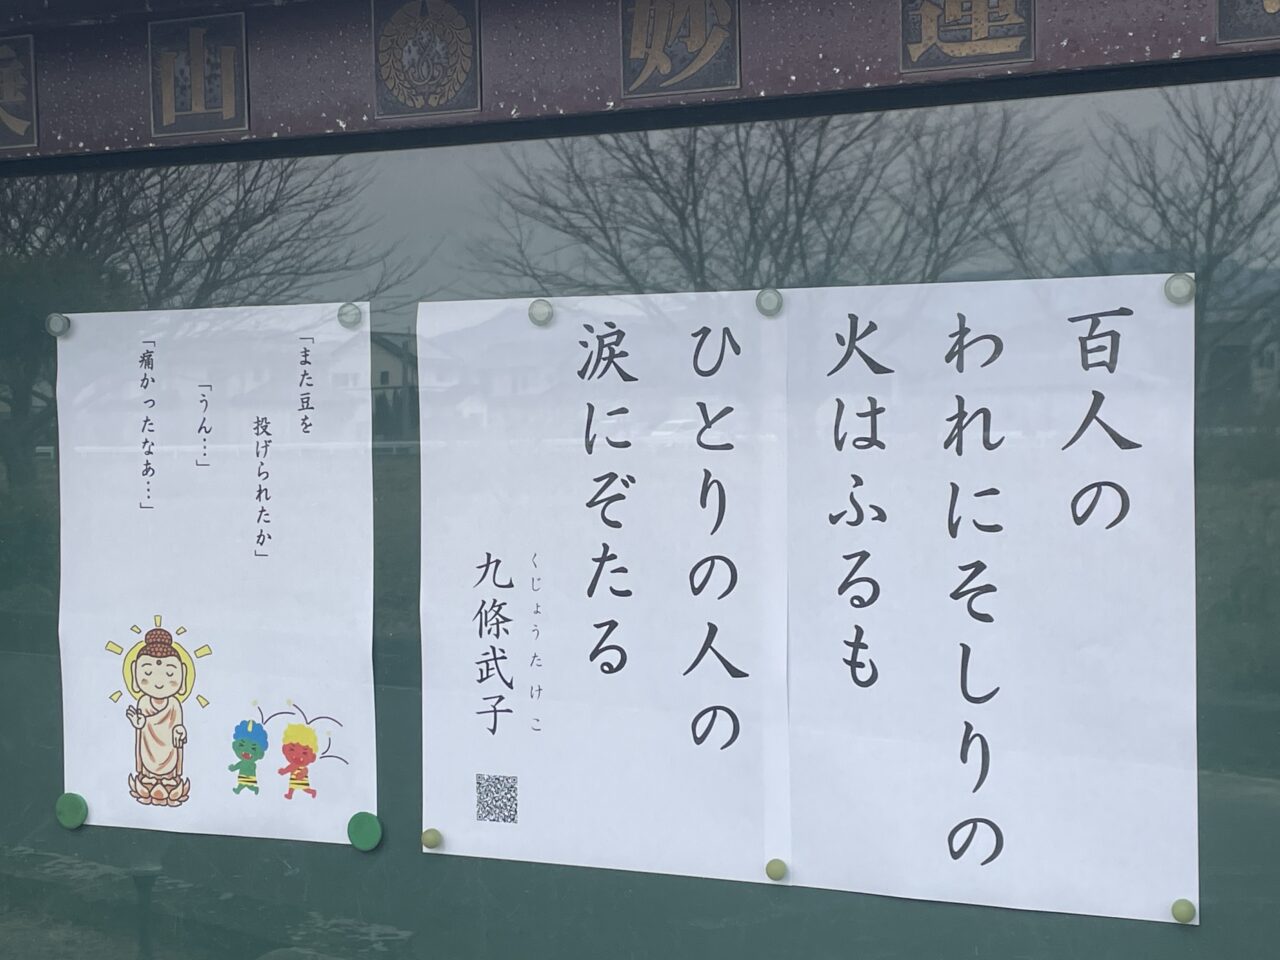 山 妙 蓮
百人の
われにそしりの
火はふるも
ひとりの人の
涙にぞたる
くじょうたけこ
九條武子
「また豆を
投げられたか」
「うん…」
「痛かったなあ…」